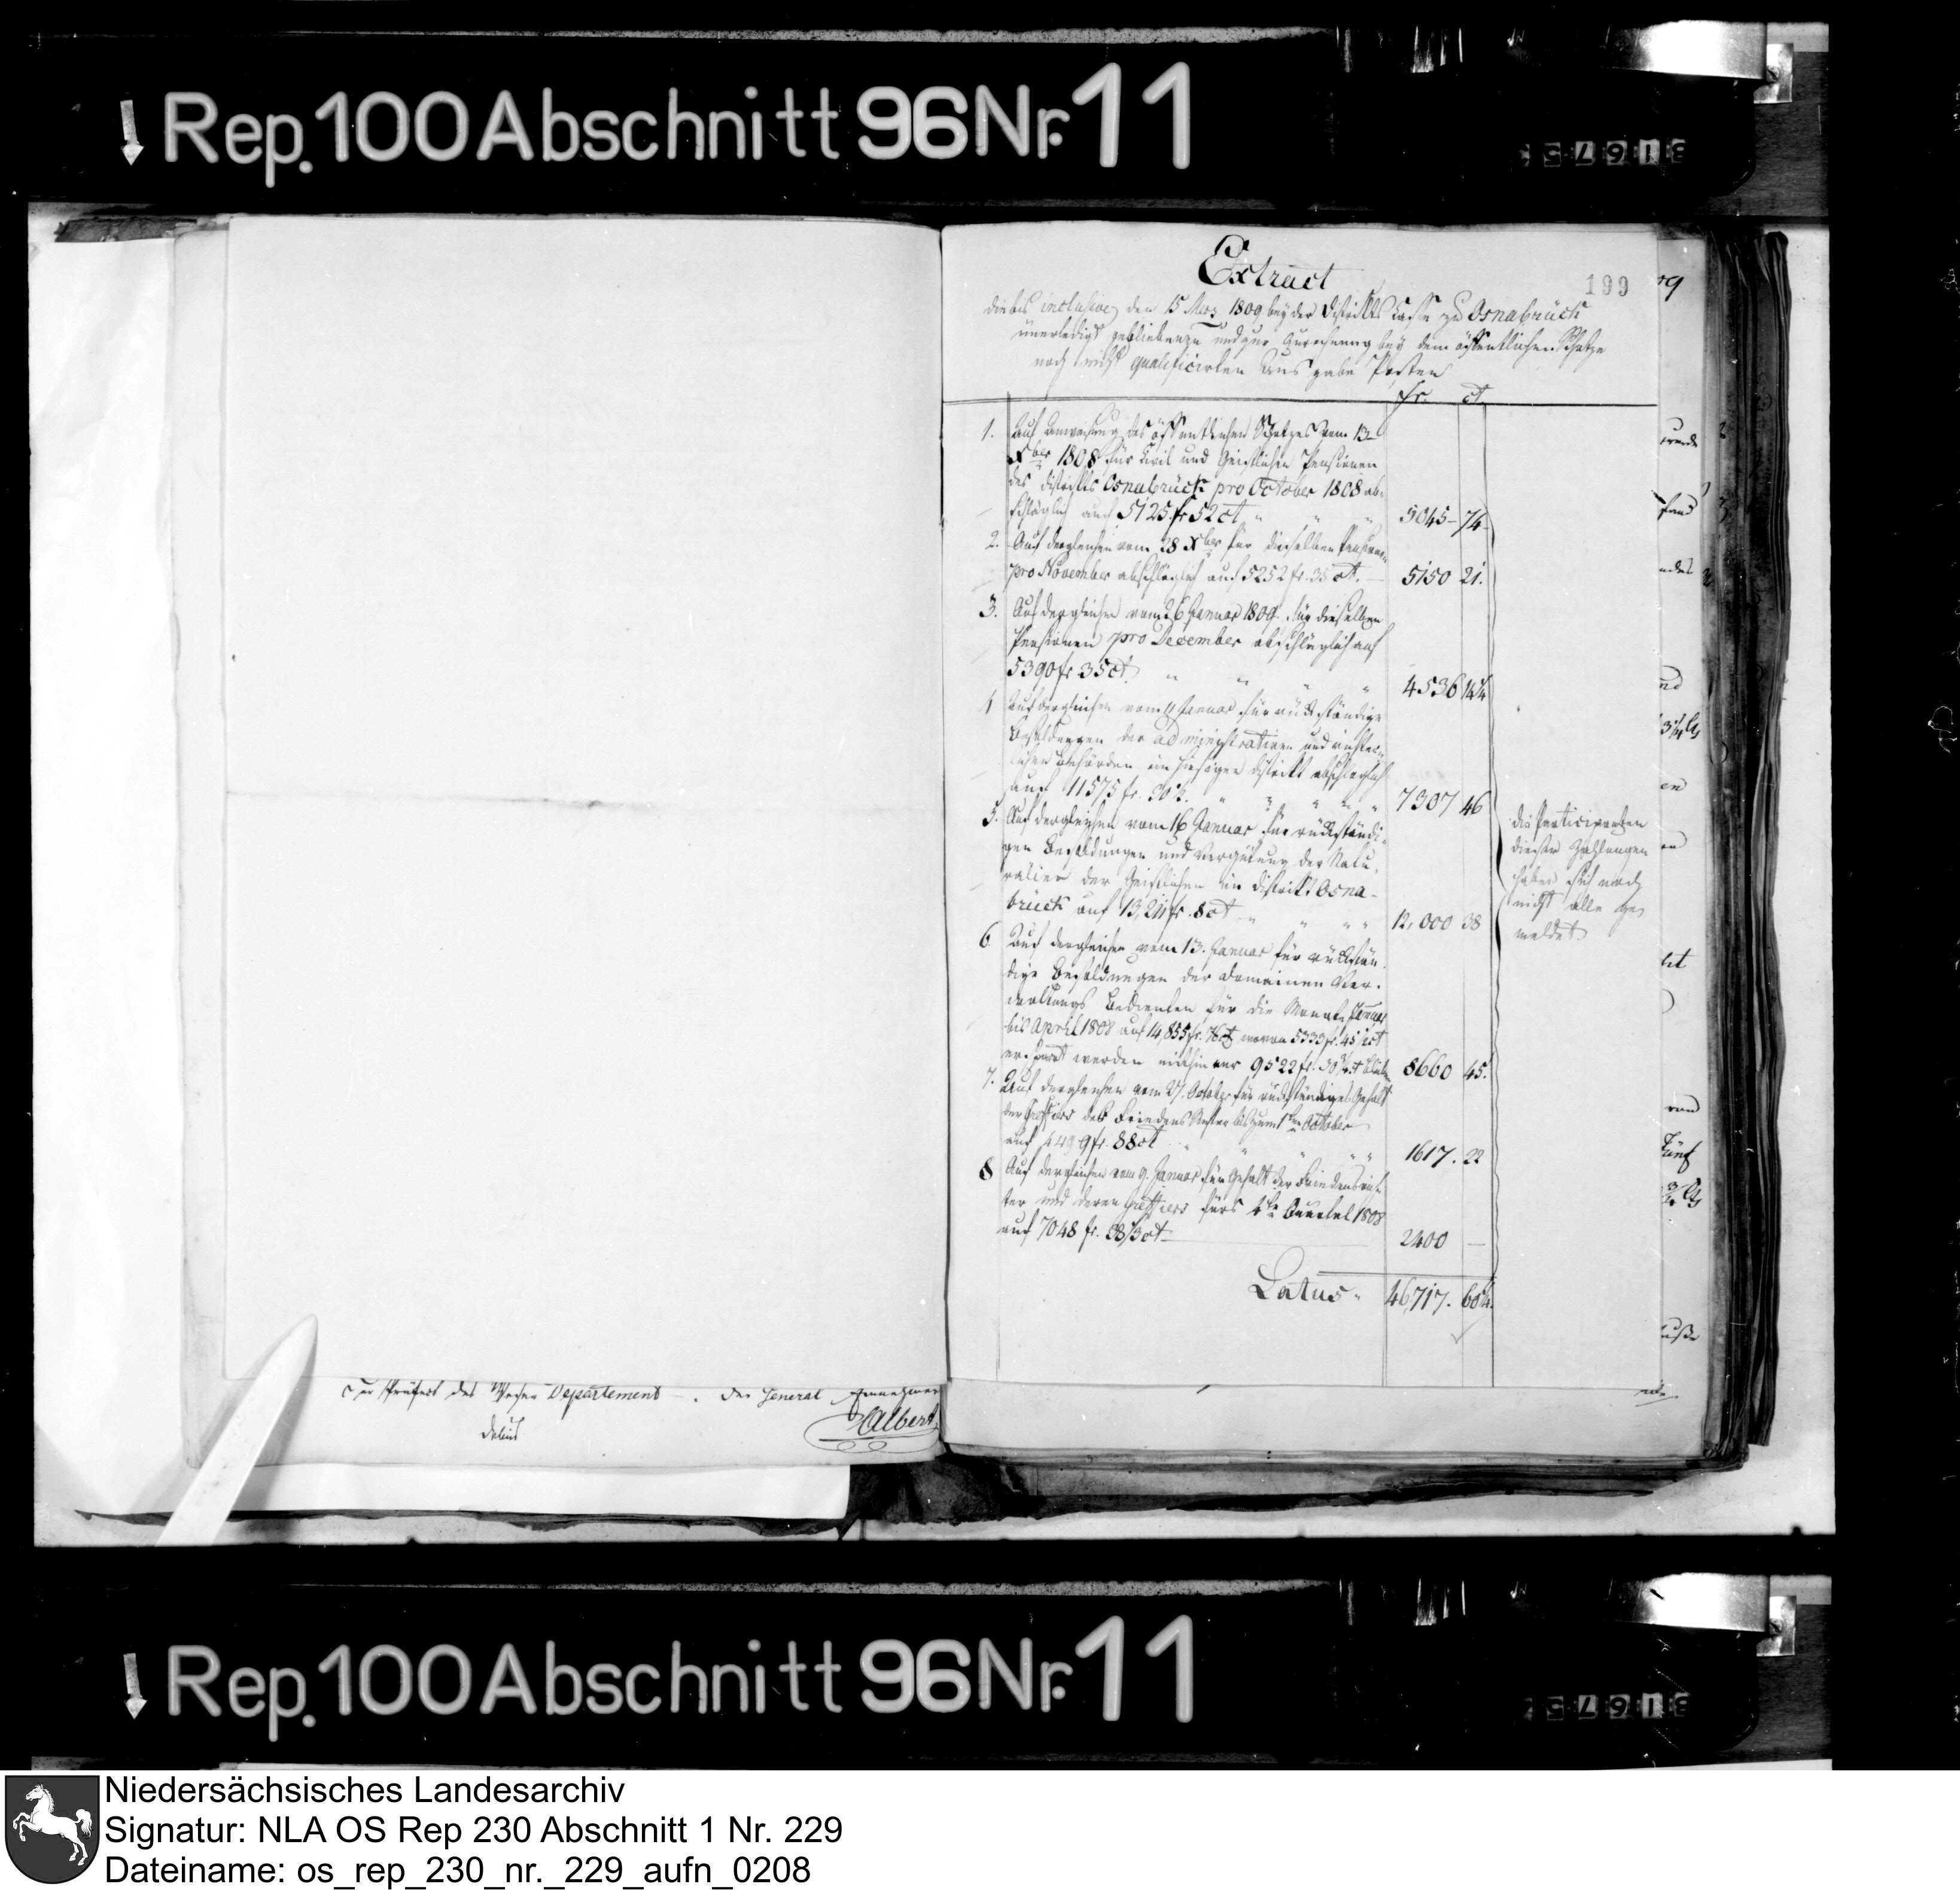 Rep. 100 Abschnitt 96 Nr. 11
Extract
199
die bis inclusive den 15 Merz 1809 bey der Distrikts Casse zu Osnabrück
unerledigt gebliebenen und zur Anrechnung bey dem öffentlichen Schatze
noch nicht qualificirten Ausgabe Posten
fr. ct.
1. Auf Anweisung des öffentlichen Schatzes vom 13
Xber 1808 für Civil und Geistlichen Pensionen
des Distrikts Osnabrück pro October 1808 ab-
schläglich auf 5125 fr 52 ct " " " 5045 - 74
2. Auf dergleichen vom 28 Xber für dieselben Pensionen
pro November abschläglich auf 5252 fr. 35 ct. 5150 21.
3. Auf dergleichen vom 26 Januar 1809 für dieselben
Pensionen pro December abschläglich auf
5390 fr 35 ct. " " " " 4536 14¼
4 Auf dergleichen vom 11 Januar für rückständige
Besoldungen der administrativen und richter-
lichen Behörden im hiesigen Distrikt abschläglich
auf 11575 fr. " " " " 7307 46
5. Auf dergleichen vom 16 Januar für rückständi-
gen Besoldungen und Vergütung der Natu-
ralien der Geistlichen im Distrikt Osna-
brück auf 13,211 fr. 8 ct " " " " 12,000 38
die Participanten
dieser Zahlungen
haben sich noch
nicht alle ge-
meldet.
6 Auf dergleichen vom 13. Januar für rückstän-
dige Besoldungen der Domainen Ver-
waltungs Bedienten für die Monate Januar
bis April 1808 auf 14,855 fr. wovon 5333 fr. 45 ct
werden mithin nur 9522 fr. 8660 45.
7. Auf dergleichen vom 27. October für rückständiges Gehalt
der Greffiers des Friedens October
auf fr. 88 ct " " " " 1617. 22
8 Auf dergleichen vom 9. Januar für Gehalt der Friedensrich-
ter und deren Greffiers fürs Quartal 1808
auf 7048 fr. ct 2400 —
Latus " 46,717. 60¼.
Der Präfect des Weser Departements. Der General Einnehmer
Delius
Albert
Rep. 100 Abschnitt 96 Nr. 11
Niedersächsisches Landesarchiv
Signatur: NLA OS Rep 230 Abschnitt 1 Nr. 229
Dateiname: os_rep_230_nr._229_aufn_0208